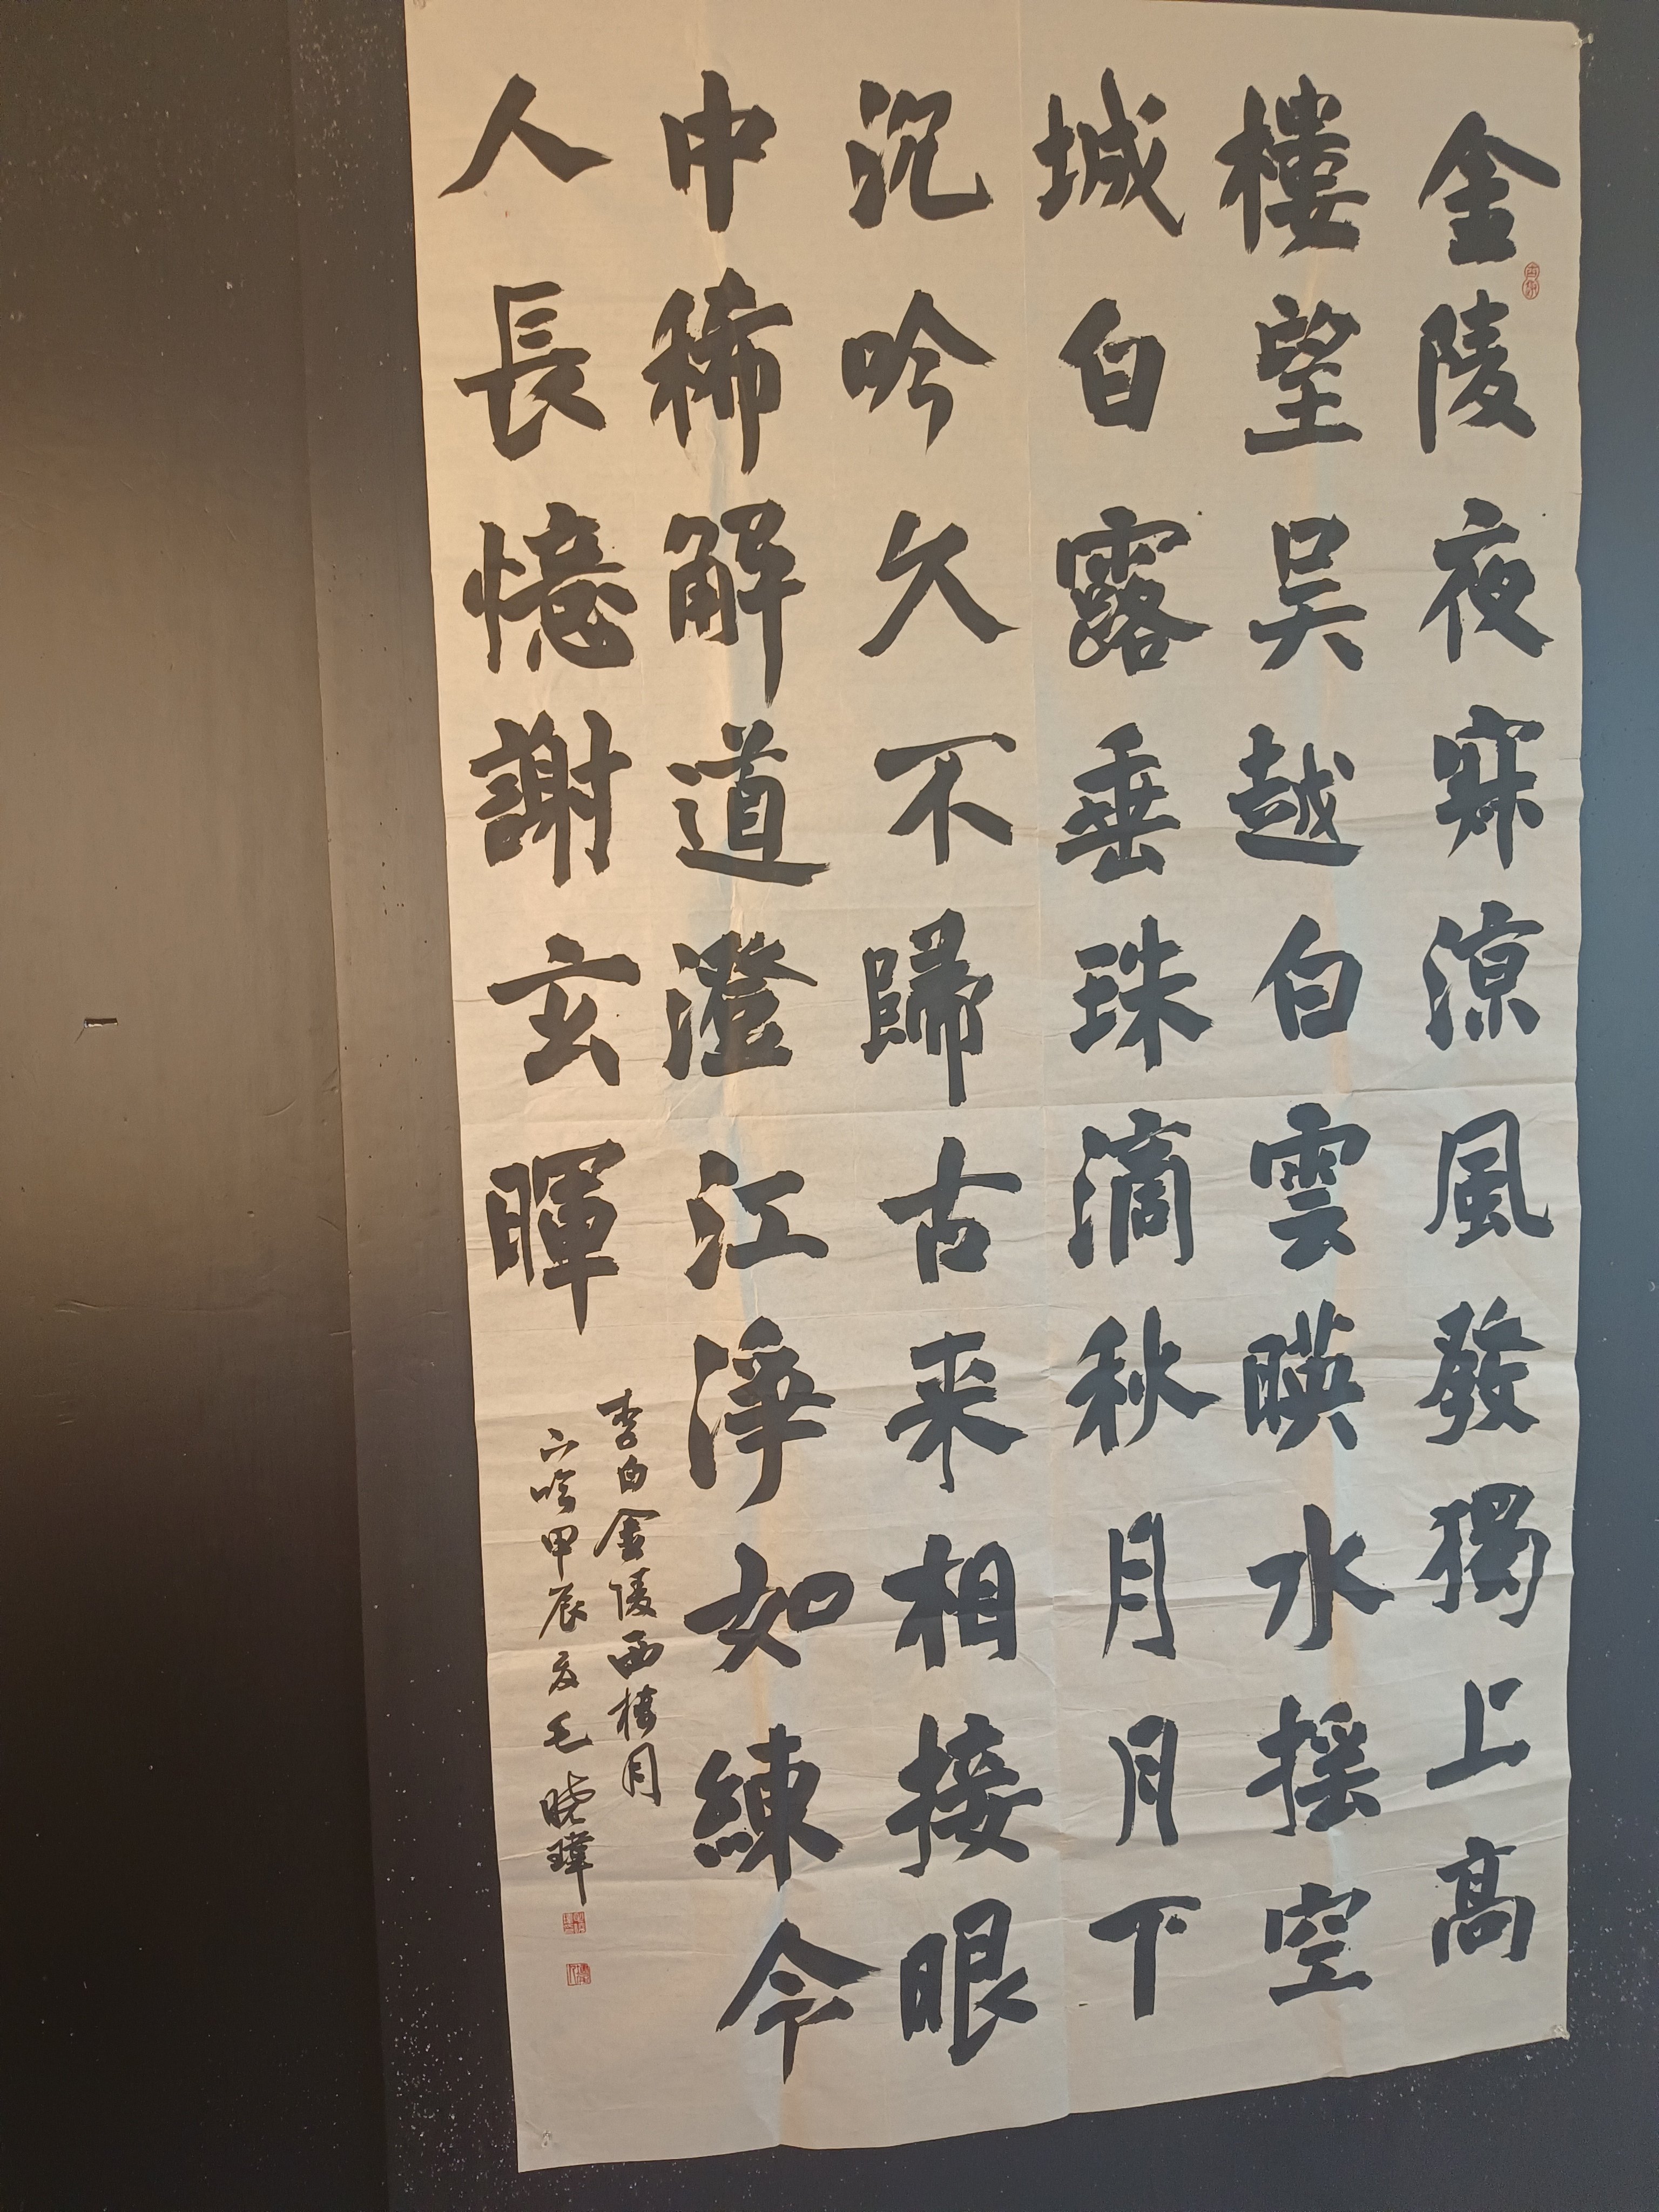 金陵夜寐涼風發獨上高
樓望吴越白雲暎水摇空
城白露垂珠滴秋月月下
沉吟久不歸古来相接眼
中稀解道澄江淨如練令
人長憶謝玄暉
李白金陵西樓月
下吟甲辰夏毛曉瑋